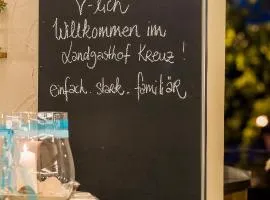 V-lich
Willkommen im
Landgasthof Kreuz!
einfach. stark. familiär